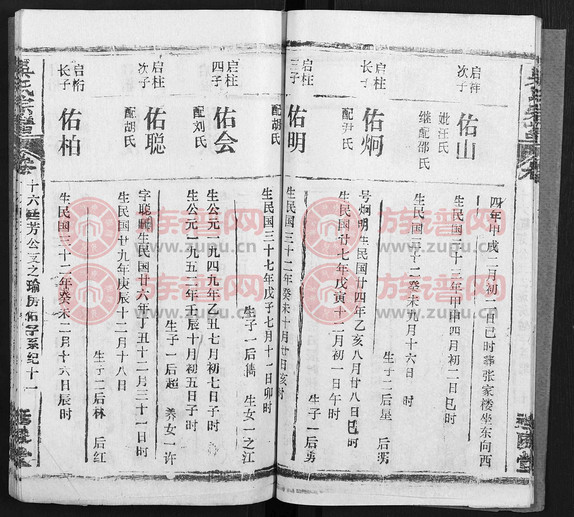 四年甲戌二月初二日巳时葬张家楼坐东向西
启祥次子
佑山
妣汪氏
继配邵氏
生民国三十三年甲申四月初二日巳时
生民国三十二年癸未九月十六日 时
生子二后星 后勇
启柱长子
佑炯
配尹氏
号炯明生民国廿四年乙亥八月廿八日巳时
生民国廿七年戊寅十二月初一日午时
生子一后勇
启柱三子
佑明
配胡氏
生民国三十二年癸未十月廿日亥时
生民国三十七年戊子七月十一日卯时
生子一后倘 生女一之江
启柱四子
佑会
配刘氏
生公元一九四九年乙丑七月初七日子时
生公元一九五二年壬辰十月初五日子时
生子一后超 养女一许
启柱次子
佑聪
配胡氏
字聪 生民国廿六年丁丑十二月三十一日时
生民国廿九年庚辰十二月十八日
生子二后林 后红
启桁长子
佑柏
生民国三十二年癸未二月十六日辰时
吴氏宗谱
卷
十六廷芳公支之瑜房佑字系纪十一
族谱网
www.zupu.cn
族谱网
www.zupu.cn
族谱网
www.zupu.cn
族谱网
www.zupu.cn